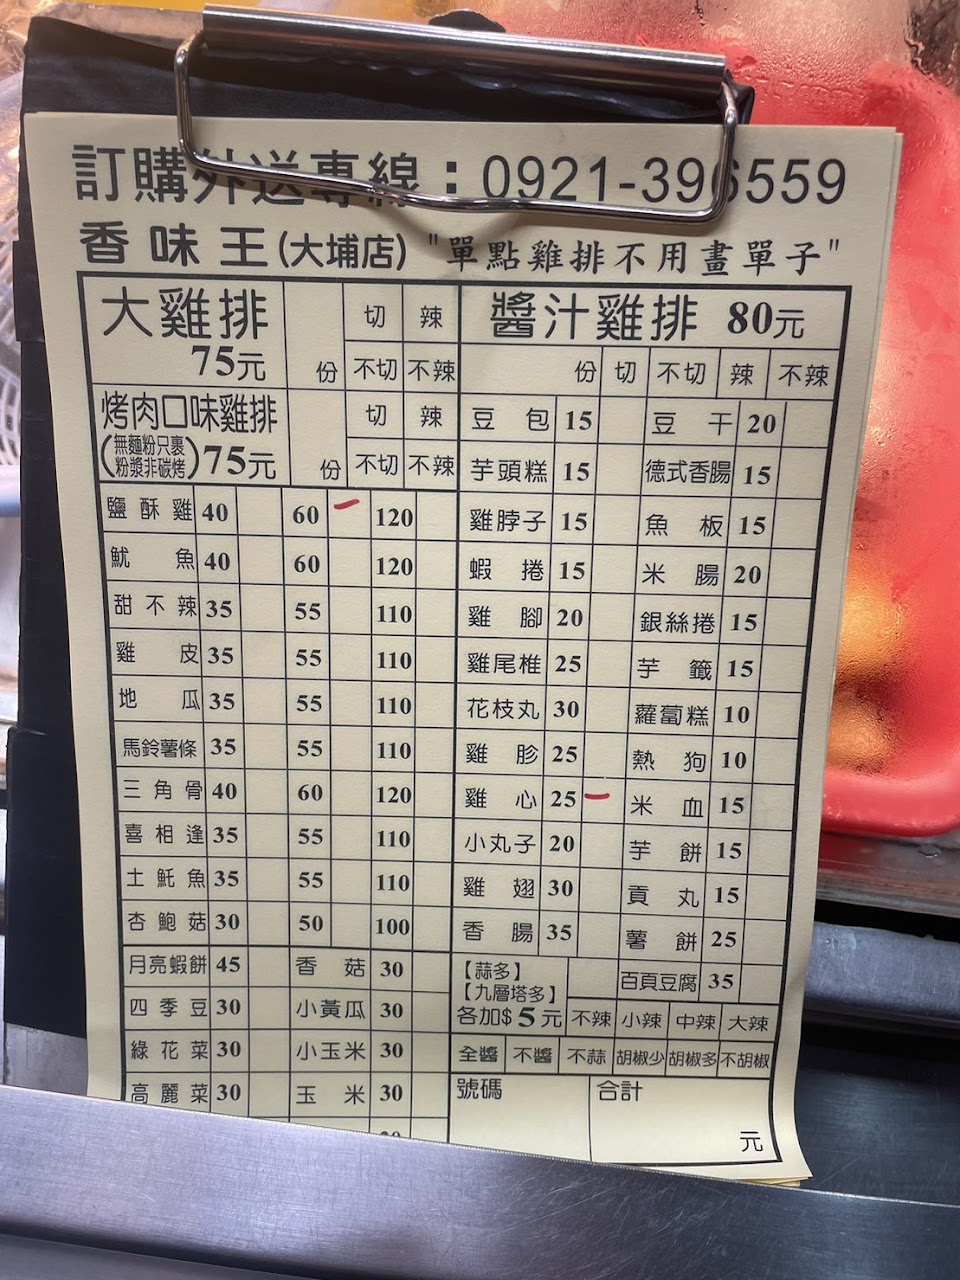 訂購外送專線：0921-396559
香味王(大埔店) "單點雞排不用畫單子"
大雞排 切 辣
75元 份 不切 不辣
烤肉口味雞排 切 辣
(無麵粉只裹粉漿非碳烤)75元 份 不切 不辣
鹽酥雞 40 60 120
魷魚 40 60 120
甜不辣 35 55 110
雞皮 35 55 110
地瓜 35 55 110
馬鈴薯條 35 55 110
三角骨 40 60 120
喜相逢 35 55 110
土魠魚 35 55 110
杏鮑菇 30 50 100
月亮蝦餅 45 香菇 30
四季豆 30 小黃瓜 30
綠花菜 30 小玉米 30
高麗菜 30 玉米 30
醬汁雞排 80元
份 切 不切 辣 不辣
豆包 15 豆干 20
芋頭糕 15 德式香腸 15
雞脖子 15 魚板 15
蝦捲 15 米腸 20
雞腳 20 銀絲捲 15
雞尾椎 25 芋籤 15
花枝丸 30 蘿蔔糕 10
雞胗 25 熱狗 10
雞心 25 米血 15
小丸子 20 芋餅 15
雞翅 30 貢丸 15
香腸 35 薯餅 25
【蒜多】 百頁豆腐 35
【九層塔多】
各加$5元 不辣 小辣 中辣 大辣
全醬 不醬 不蒜 胡椒少 胡椒多 不胡椒
號碼 合計
元